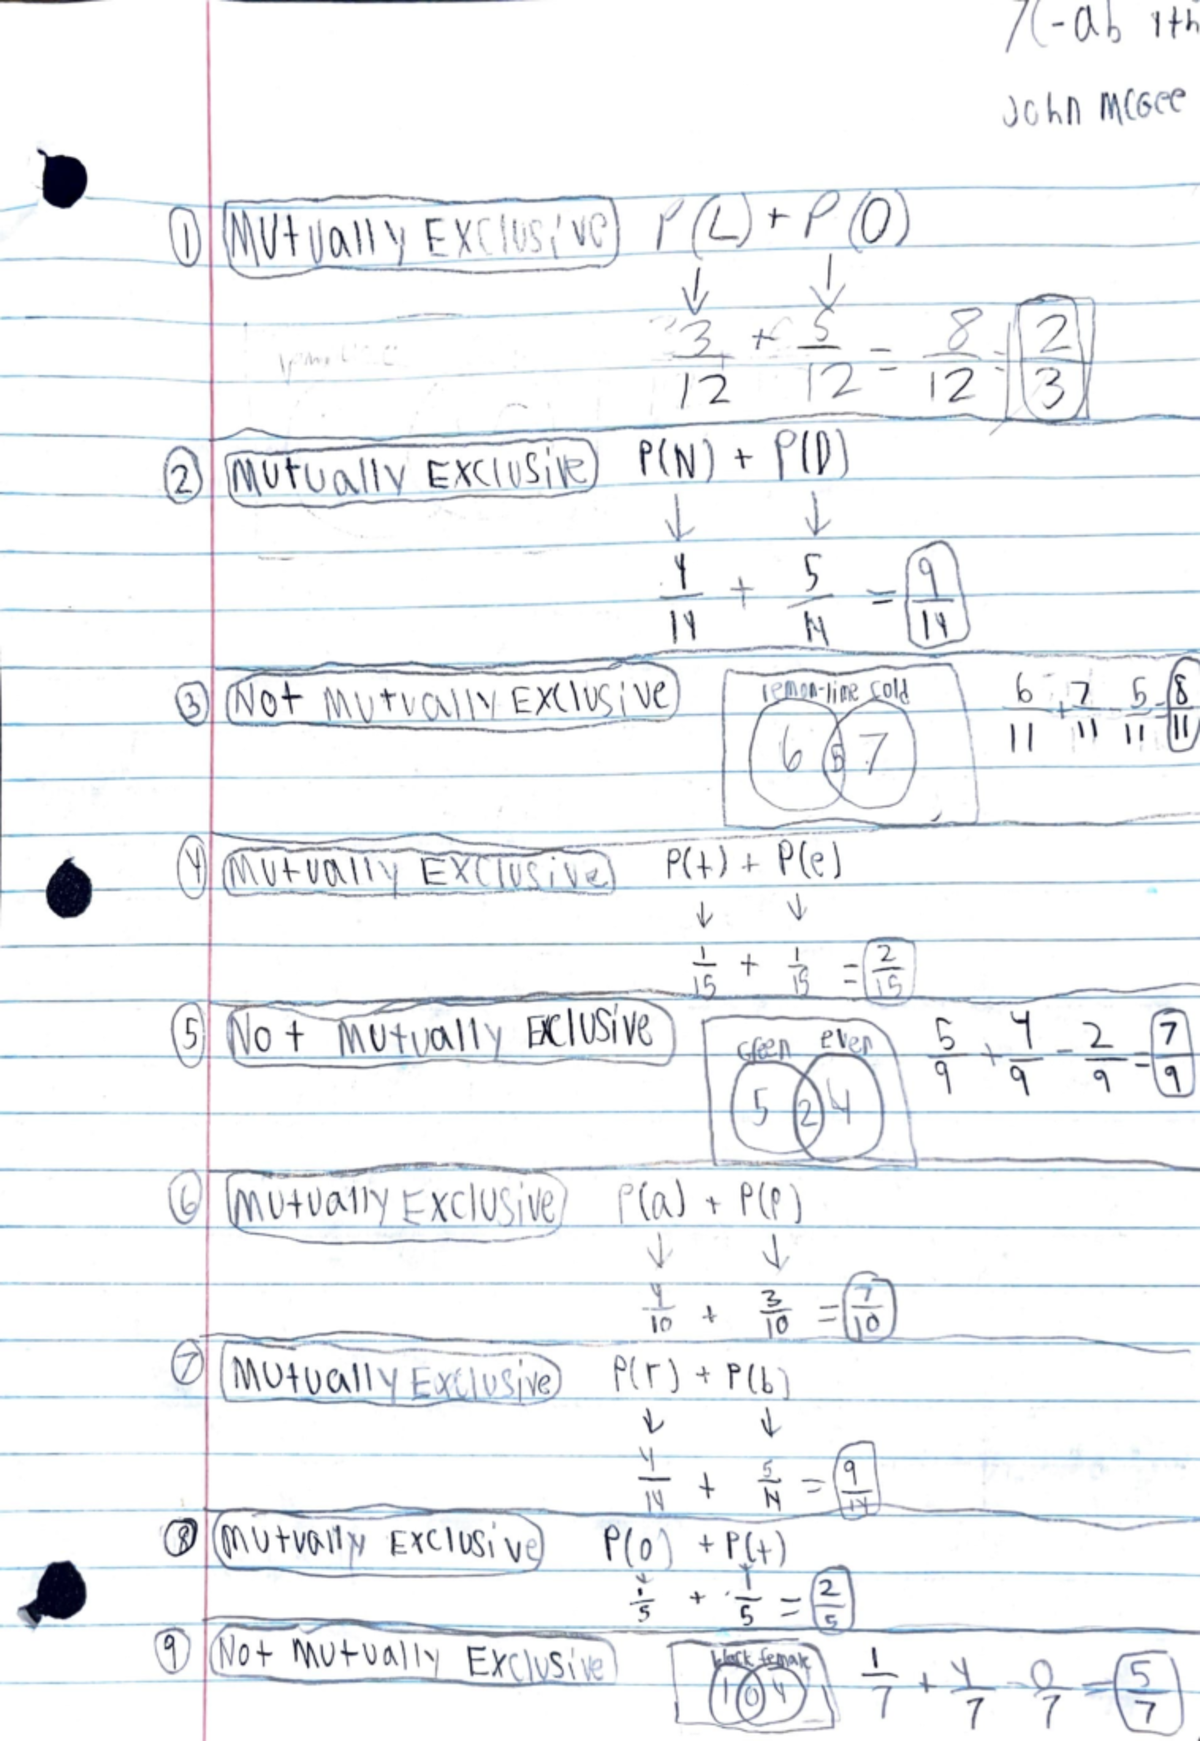 John McGee
① Mutually Exclusive P(L) + P(O)
↓ ↓
3/12 + 5/12 = 8/12 = 2/3
② Mutually Exclusive P(N) + P(D)
↓ ↓
4/14 + 5/14 = 9/14
③ Not Mutually Exclusive lemon-lime cold 6/11 + 7/11 - 5/11 = 8/11
6 5 7
④ Mutually Exclusive P(t) + P(e)
↓ ↓
1/15 + 1/15 = 2/15
⑤ Not Mutually Exclusive Green even 5/9 + 4/9 - 2/9 = 7/9
5 2 4
⑥ Mutually Exclusive P(a) + P(p)
↓ ↓
4/10 + 3/10 = 7/10
⑦ Mutually Exclusive P(r) + P(b)
↓ ↓
4/14 + 5/14 = 9/14
⑧ Mutually Exclusive P(o) + P(t)
1/5 + 1/5 = 2/5
⑨ Not Mutually Exclusive black female 1/7 + 4/7 - 0/7 = 5/7
1 0 4